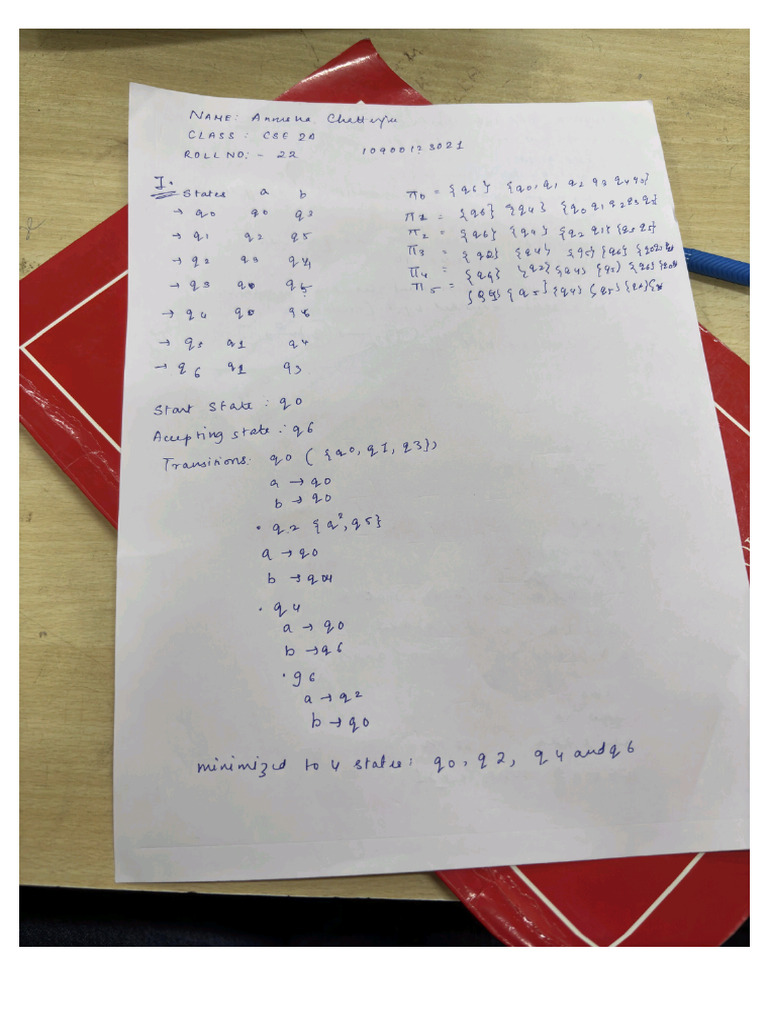 NAME: Chatterjee
CLASS: CSE 2A
ROLL NO:- 22 10900123021
I.
States a b
→ q0 q0 q3
→ q1 q2 q5
→ q2 q3 q4
→ q3 q0 q5
→ q4 q0 q6
→ q5 q1 q4
→ q6 q1 q3
π0 = {q6} {q0, q1 q2 q3 q4 q5}
π1 = {q6} {q4} {q0 q1 q2 q3 q5}
π2 = {q6} {q4} {q2 q1} {q0 q5}
π3 = {q2} {q4} {q5} {q6}
π4 = {q2} {q4} {q5} {q6}
π5 =
{q5} {q4} {q5}
Start State: q0
Accepting state: q6
Transitions: q0 ({q0, q1, q3}),
a → q0
b → q0
• q2 {q2, q5}
a → q0
b → q04
• q4
a → q0
b → q6
• q6
a → q2
b → q0
minimized to 4 states: q0, q2, q4 and q6